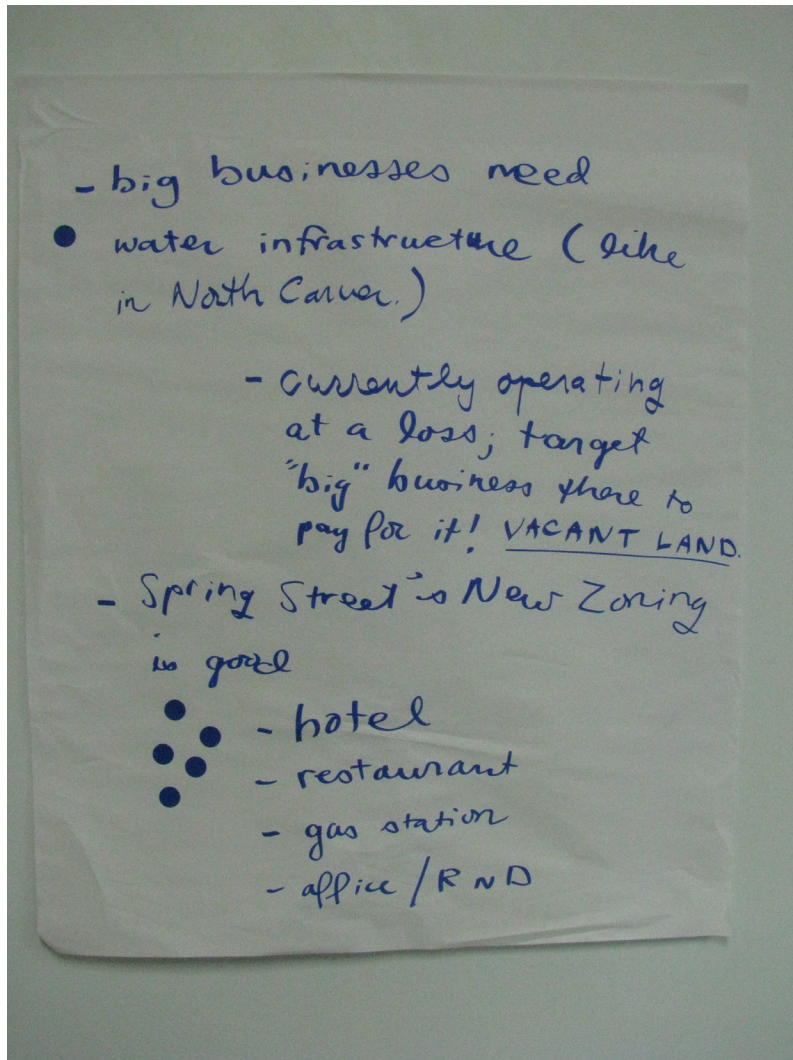 - big businesses need
water infrastructure (like
in North Carver.)
- currently operating
at a loss; target
"big" business there to
pay for it! VACANT LAND.
- Spring Street's New Zoning
is good
- hotel
- restaurant
- gas station
- office / R N D